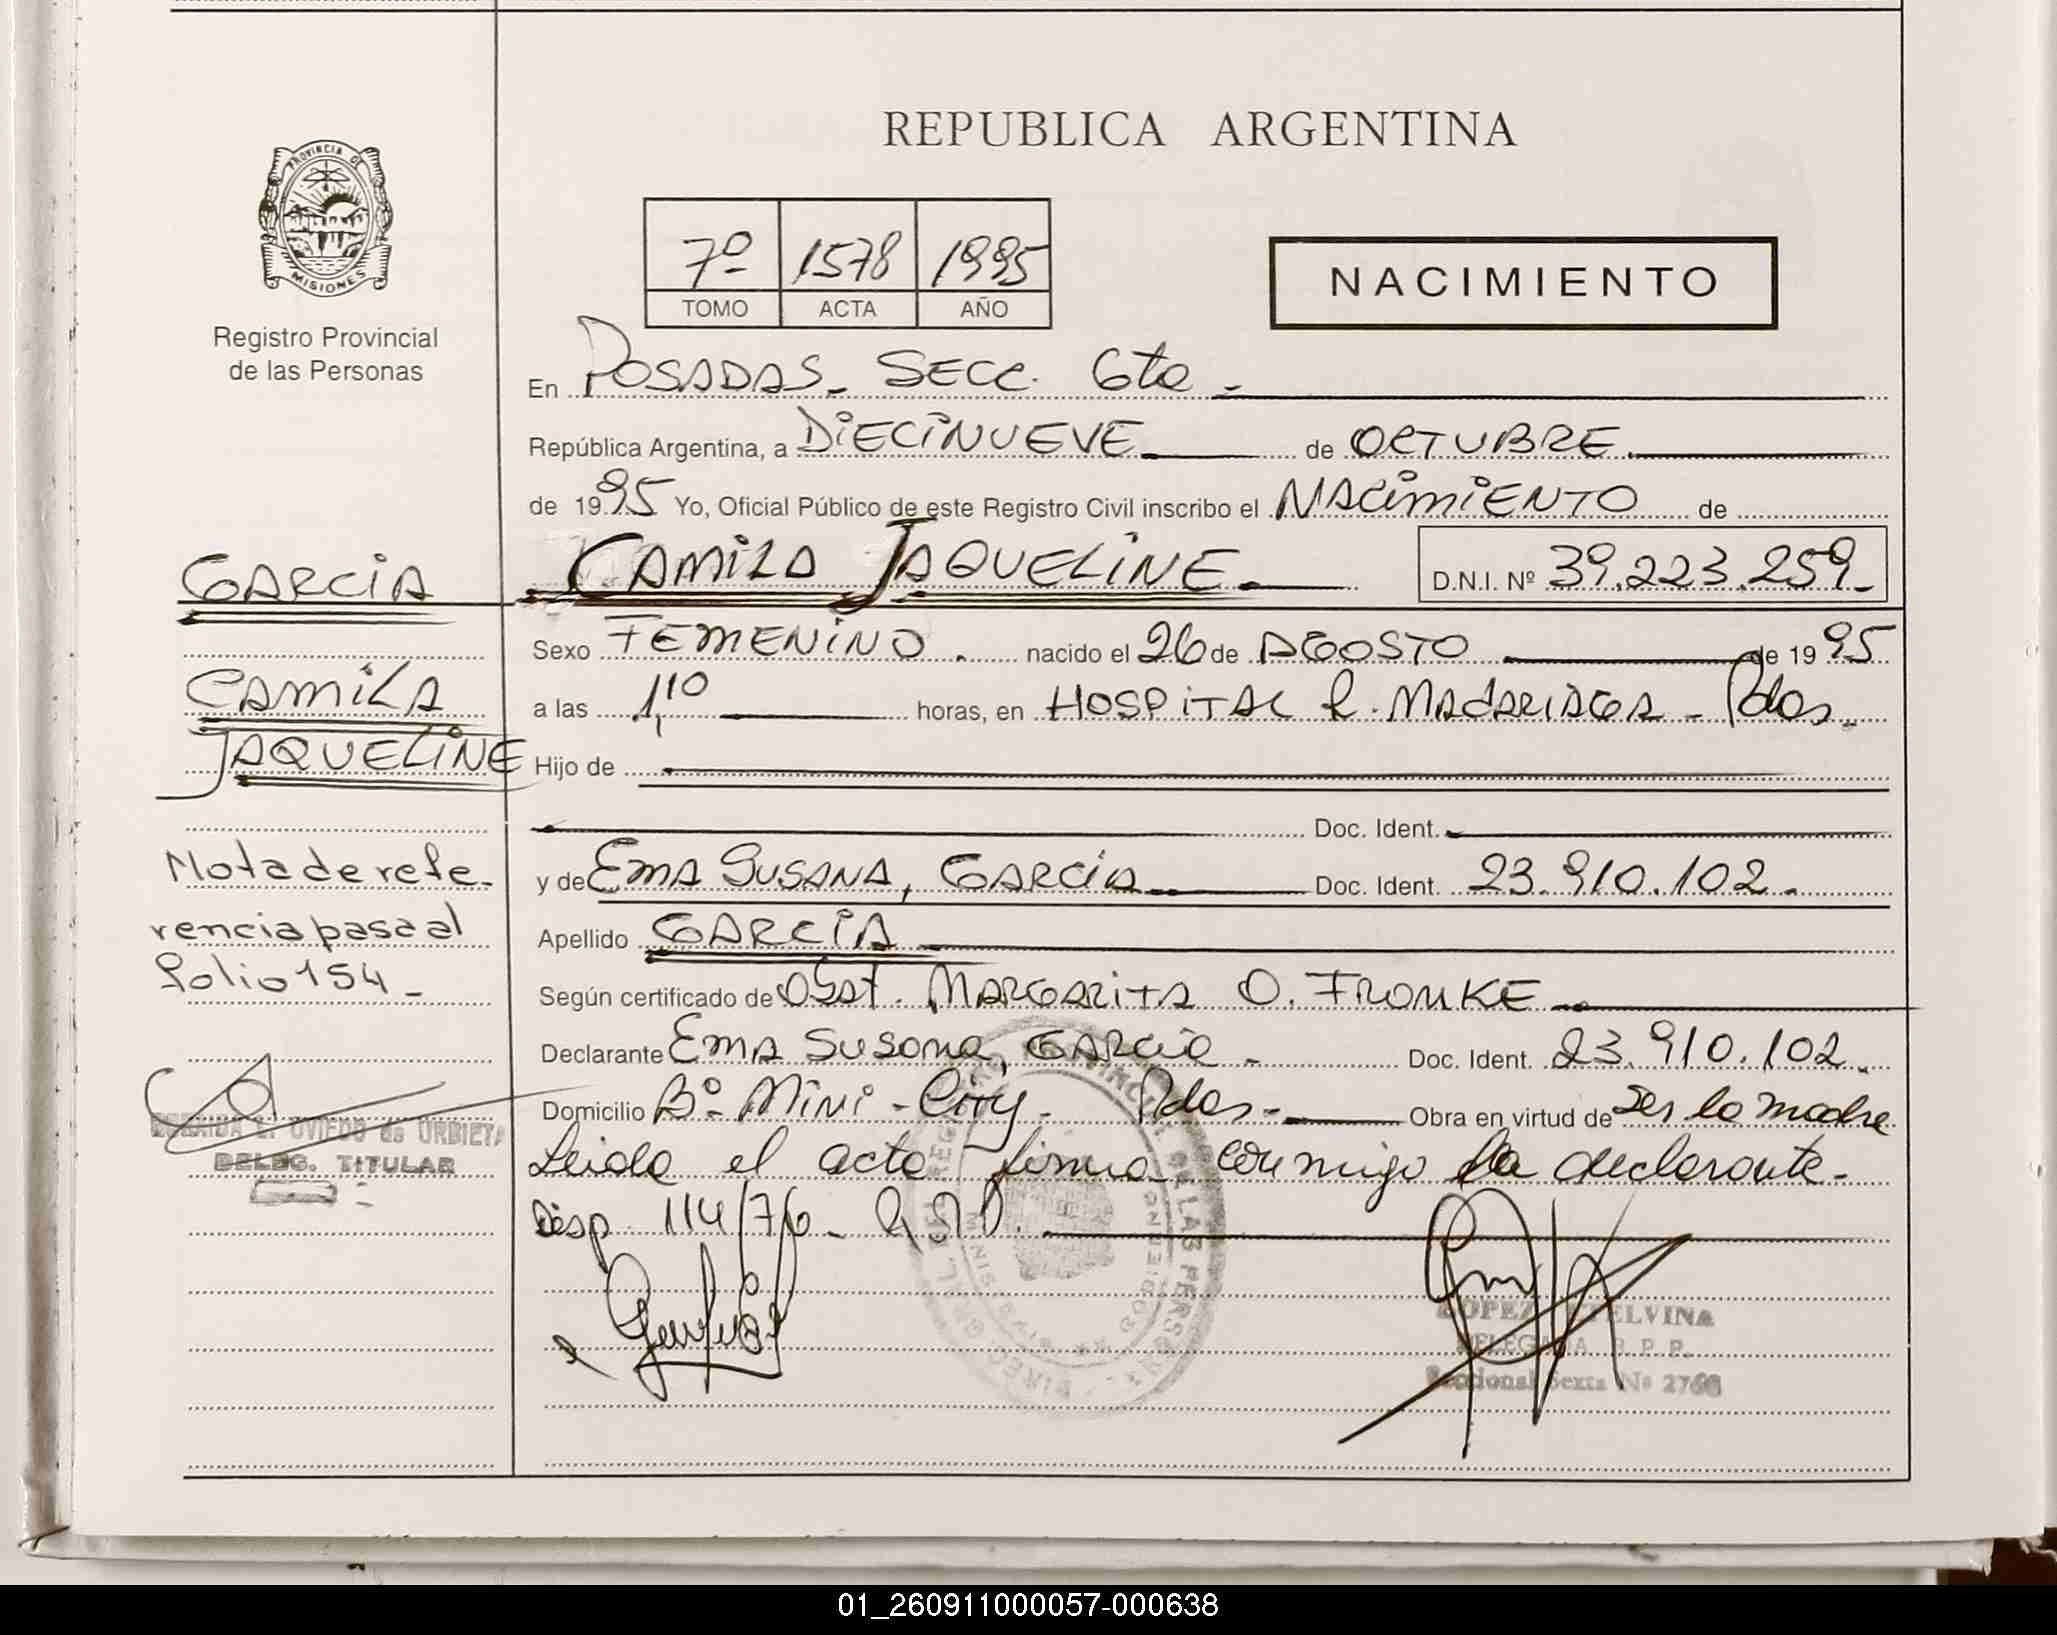 REPUBLICA ARGENTINA
PROVINCIA DE
MISIONES
Registro Provincial
de las Personas
7º 1578 1995
TOMO ACTA AÑO
NACIMIENTO
En POSADAS - SECC. 6ta -
República Argentina, a DIECINUEVE de OCTUBRE
de 1995 Yo, Oficial Público de este Registro Civil inscribo el NACIMIENTO de
GARCIA
CAMILA JAQUELINE D.N.I. Nº 39.223.259-
Sexo FEMENINO. nacido el 26 de AGOSTO de 1995
CAMILA
JAQUELINE
a las 1,10 horas, en HOSPITAL R. MADARIAGA - Pdas.
Hijo de
Doc. Ident.
Nota de refe-
rencia pasa al
folio 154 -
y de EMA SUSANA, GARCIA Doc. Ident. 23.910.102.
Apellido GARCIA
Según certificado de Obst. MARGARITA O. FROMKE
Declarante EMA SUSANA, GARCIA - Doc. Ident. 23.910.102.
Domicilio Bº Mini - City - Pdas - Obra en virtud de ser la madre
OVIEDO de ORBIETA
DELEG. TITULAR
Leida el acta firma conmigo la declarante.
Disp. 114/76 -
LOPEZ ETELVINA
DELEGADA R. P. P.
Seccional Sexta Nº
01_260911000057-000638